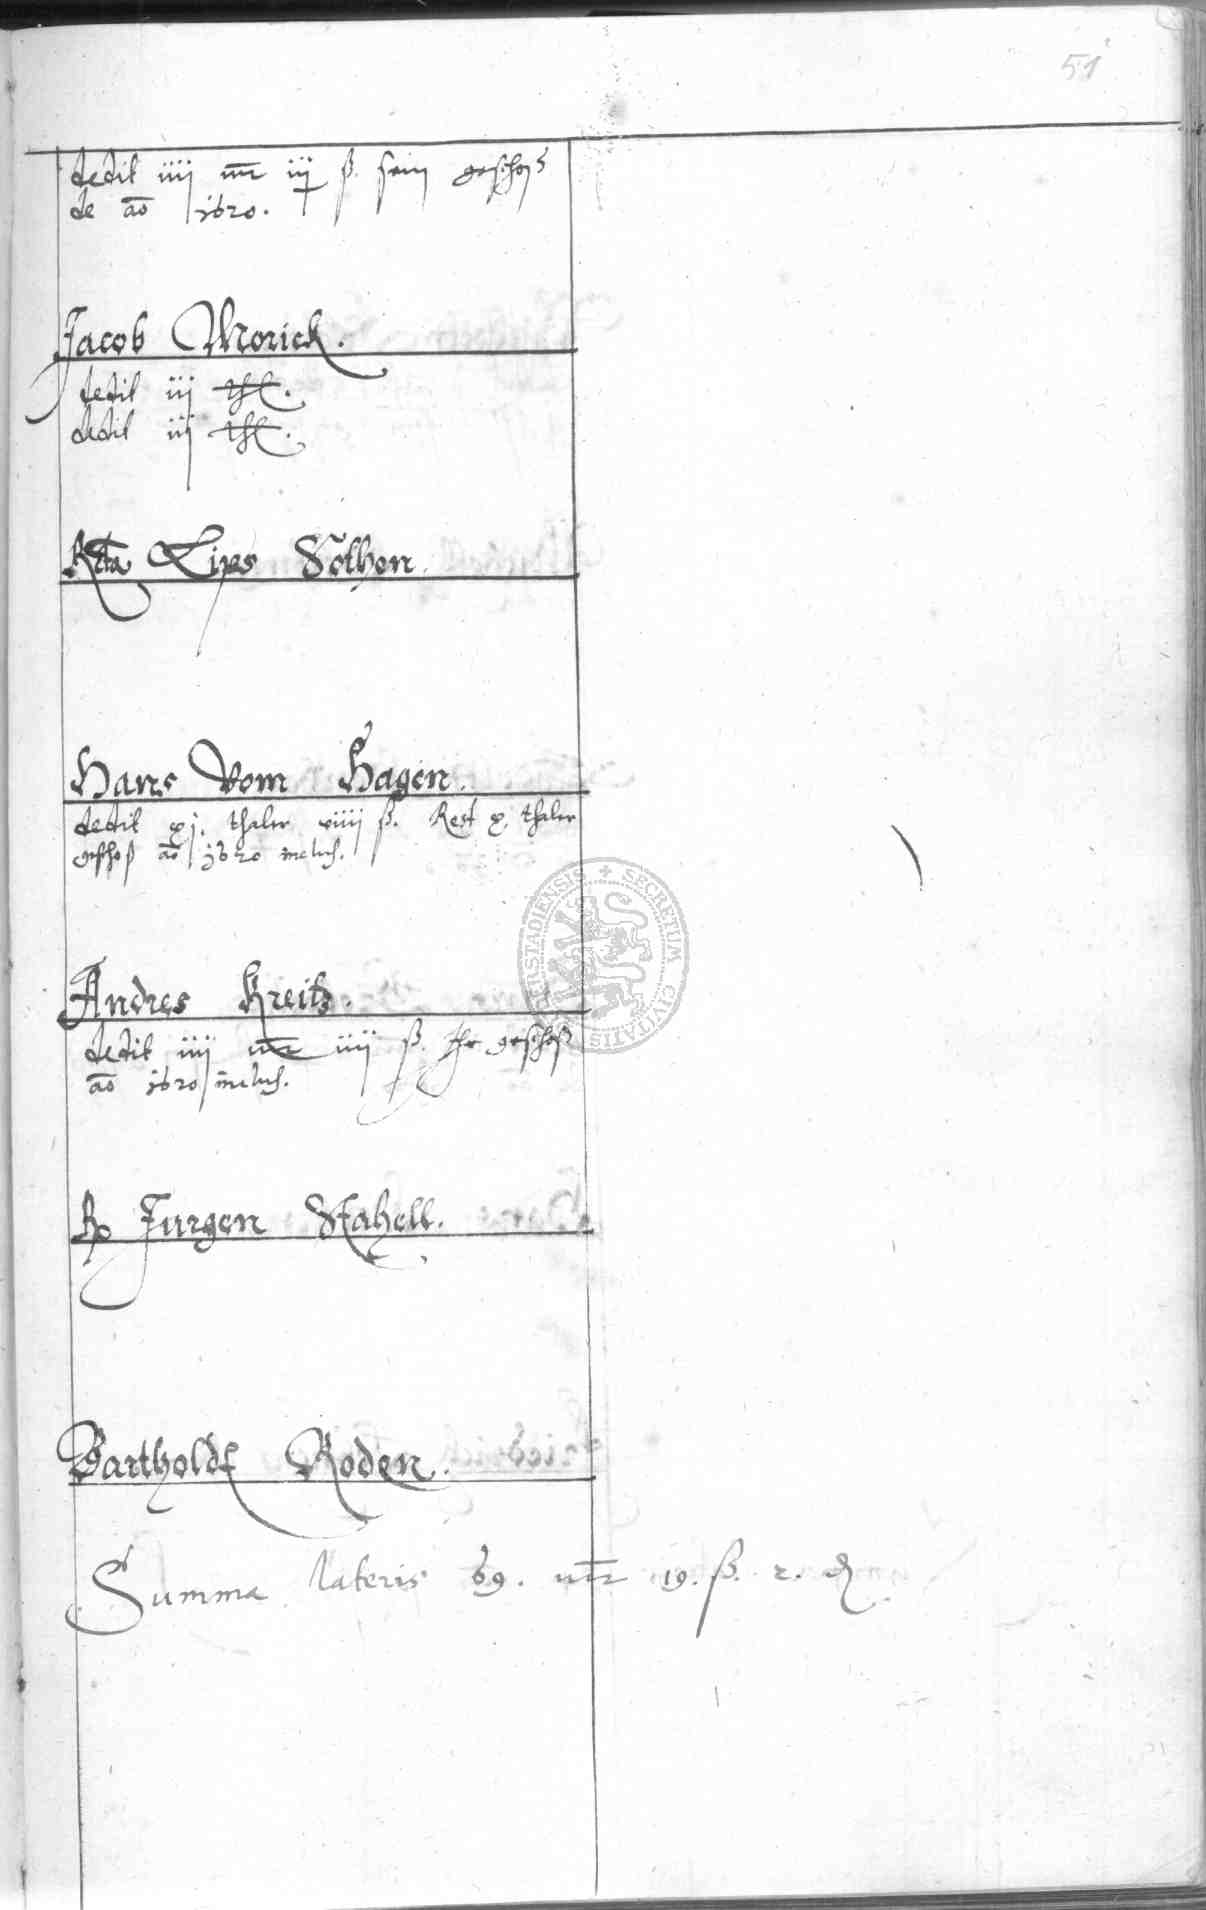 51
dedit iiij mr iij ß. sein geschoß
de ao 1620.
Jacob Morick.
dedit iij thl.
dedit iij thl.
Rcta Lips Söthen.
Hans Vom Hagen.
dedit xj. thaler viiij ß. Rest x. thaler
geschoß ao 1620 inclus.
Andres Kreitz.
dedit iiij mr iiij ß. geschoß
ao 1620 inclus.
Jurgen Stahell.
Bartholdt Roden.
Summa lateris 69. mr 19. ß. 2. ₰
SECRETUM CIVITATIS ERSTADIENSIS